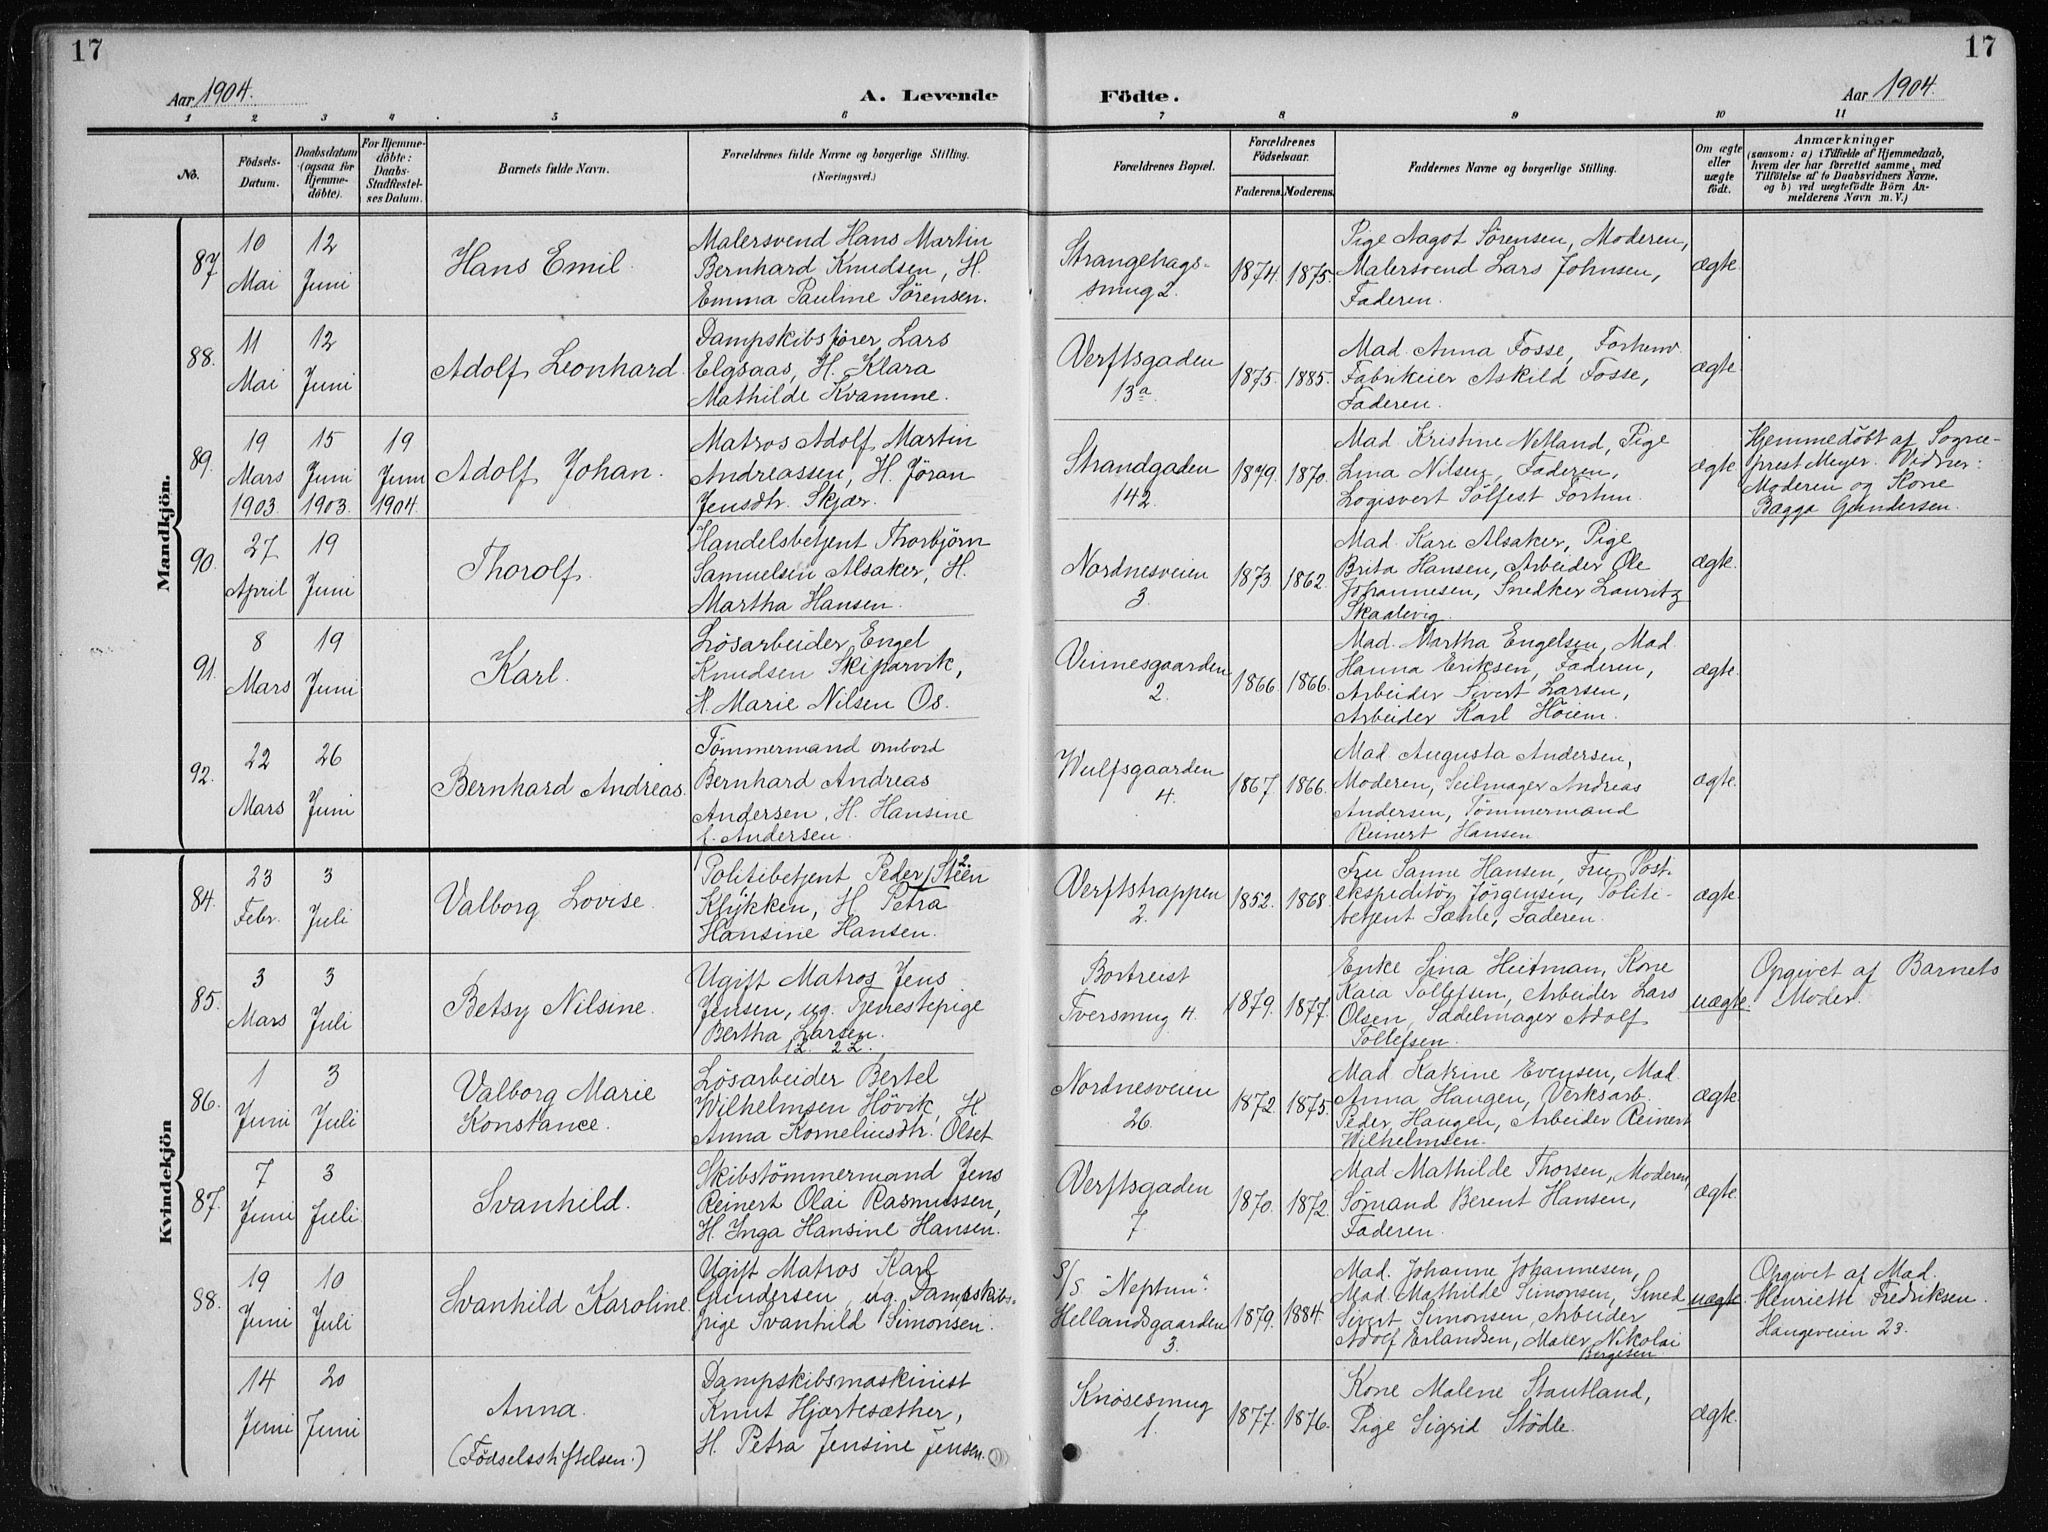 17
17
Aar 1904.
A. Levende
Födte.
Aar 1904.
1 2 3 4 5 6 7 8 9 10 11
No.
Födsels-
Datum.
Daabsdatum
(ogsaa for
Hjemme-
døbte).
For Hjemme-
döbte:
Daabs-
Stadfæstel-
ses Datum.
Barnets fulde Navn.
Forældrenes fulde Navne og borgerlige Stilling.
(Næringsvei.)
Forældrenes Bopæl.
Forældrenes
Födselsaar.
Faderens. Moderens.
Faddernes Navne og borgerlige Stilling.
Om ægte
eller
uægte
födt.
Anmærkninger
(saasom: a) i Tilfælde af Hjemmedaab,
hvem der har forrettet samme, med
Tilföielse af to Daabsvidners Navne,
og b) ved uægtefödte Börn An-
melderens Navn m. V.)
Mandkjön.
87
10
Mai
12
Juni
Hans Emil.
Malersvend Hans Martin
Bernhard Knudsen, H.
Emma Pauline Sørensen.
Strangehags-
smug 2.
1874. 1875.
Pige Aagot Sørensen, Moderen,
Malersvend Lars Johnsen,
Faderen.
ægte.
88.
11
Mai
12
Juni
Adolf Leonhard.
Dampskibsfører Lars
Elgsaas, H. Klara
Mathilde Kvamme.
Verftsgaden
13a.
1875. 1885.
Mad. Anna Fosse, Forhenv.
Fabrikeier Askild Fosse,
Faderen.
ægte.
89.
19
Mars
1903
15
Juni
1903.
19
Juni
1904.
Adolf Johan.
Matros Adolf Martin
Andreassen, H. Jöran
Jensdtr. Skjær.
Strandgaden
142.
1879. 1870.
Mad Kristine Netland, Pige
Lina Nilsen, Faderen,
Logisvert Sölfest Forthun.
ægte.
Hjemmedöbt af Sogne-
prest Meyer. Vidner:
Moderen og Kone
Bagga Gundersen.
90.
27
April
19
Juni
Thorolf.
Handelsbetjent Thorbjörn
Samuelsen Alsaker, H.
Martha Hansen.
Nordnesveien
3.
1873 1862.
Mad. Kari Alsaker, Pige
Brita Hansen, Arbeider Ole
Johannesen, Snedker Lauritz
Skaalevig.
ægte.
91.
8
Mars
19
Juni
Karl.
Lösarbeider Engel
Knudsen Skiparvik,
H. Marie Nilsen Os.
Vinnesgaarden
2.
1866. 1866.
Mad. Martha Engelsen, Mad.
Hanna Eriksen, Faderen,
Arbeider Sivert Larsen,
Arbeider Karl Höiem.
ægte.
92.
22
Mars
26
Juni
Bernhard Andreas.
Tömmermand ombord
Bernhard Andreas
Andersen, H. Hansine
f. Andersen.
Wulfsgaarden
4.
1867 1866.
Mad Augusta Andersen,
Moderen, Seilmager Andreas
Andersen, Tömmermand
Reinert Hansen.
ægte.
Kvindekjön
84.
23
Febr.
3
Juli
Valborg Lovise.
Politibetjent Peder Steen
Klykken, H. Petra
Hansine Hansen.
Verftstrappen
2.
1852. 1868
Fru Sanne Hansen, Fru Post-
ekspeditör Jørgensen, Politi-
betjent Sæhle, Faderen.
ægte.
85.
3
Mars
3
Juli
Betsy Nilsine.
Ugift Matros Jens
Jensen, ug. Tjenestepige
Bertha Larsen.
1L. 2L.
Bortreist
Tversmug 4.
1879. 1877.
Enke Sina Heitman, Kone
Kaia Tollefsen, Arbeider Lars
Olsen, Sadelmager Adolf
Tollefsen.
uægte.
Opgivet af Barnets
Moder.
86.
1
Juni
3
Juli
Valborg Marie
Konstance.
Lösarbeider Bertel
Wilhelmsen Hövik, H.
Anna Korneliusdtr. Olset
Nordnesveien
26.
1872. 1875.
Mad Katrine Evensen, Mad
Anna Haugen, Verksarb.
Peder Haugen, Arbeider Reinert
Wilhelmsen.
ægte.
87.
7
Juni
3
Juli.
Svanhild.
Skibstömmermand Jens
Reinert Olai Rasmussen,
H. Inga Hansine Hansen.
Verftsgaden
7.
1870. 1872.
Mad Mathilde Thorsen, Moderen,
Sömand Berent Hansen,
Faderen.
ægte.
88.
19
Juni
10
Juli
Svanhild Karoline.
Ugift Matros Karl
Gundersen, ug. Dampskibs-
pige Svanhild Simonsen.
S/S "Neptun".
Hellandsgaarden
3.
1879. 1884.
Mad. Johanne Johannesen,
Mad. Mathilde Simonsen, Smed
Sivert Simonsen, Arbeider
Adolf Erlandsen, Maler Nikolai
Bergesen
uægte.
Opgivet af Mad.
Henriette Fredriksen.
Haugeveien 23.
14
Juni
20
Juni
Anna.
(Födselsstiftelsen.)
Dampskibsmaskinist
Knut Hjartesæther,
H. Petra Jensine Jensen.
Knösesmug
1.
1877. 1876.
Kone Malene Stautland,
Pige Sigrid Stödle.
ægte.